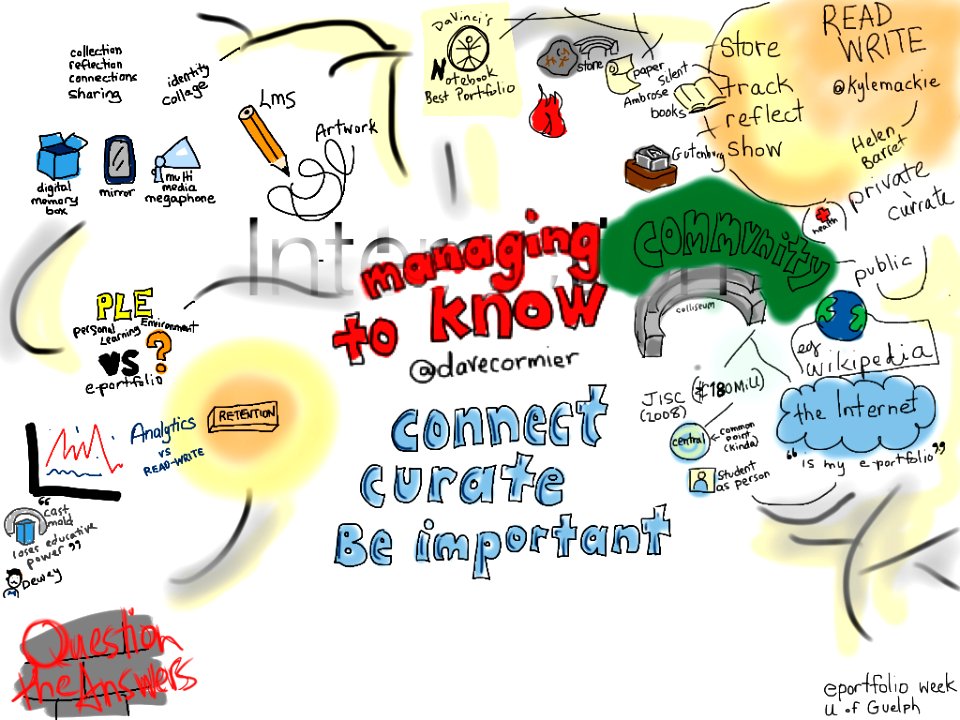 collection
reflection
connections
sharing
identity
collage
digital
memory
box
mirror
multi
media
megaphone
Lms
Artwork
DaVinci's
Notebook
Best Portfolio
store
paper
Silent
Ambrose
books
Gutenburg
Store
track
reflect
show
READ
WRITE
@kylemackie
Helen
Barret
private
currate
health
public
community
colliseum
managing
to know
@davecormier
connect
curate
Be important
PLE
personal Environment
Learning
vs ?
e-portfolio
RETENTION
Analytics
vs
READ-WRITE
"cast
mold
loses educative
power"
Dewey
Question
the Answers
eg
wikipedia
the Internet
"is my e-portfolio"
JISC
(2008)
central
common
point
(kinda)
Student
as person
eportfolio week
u of Guelph